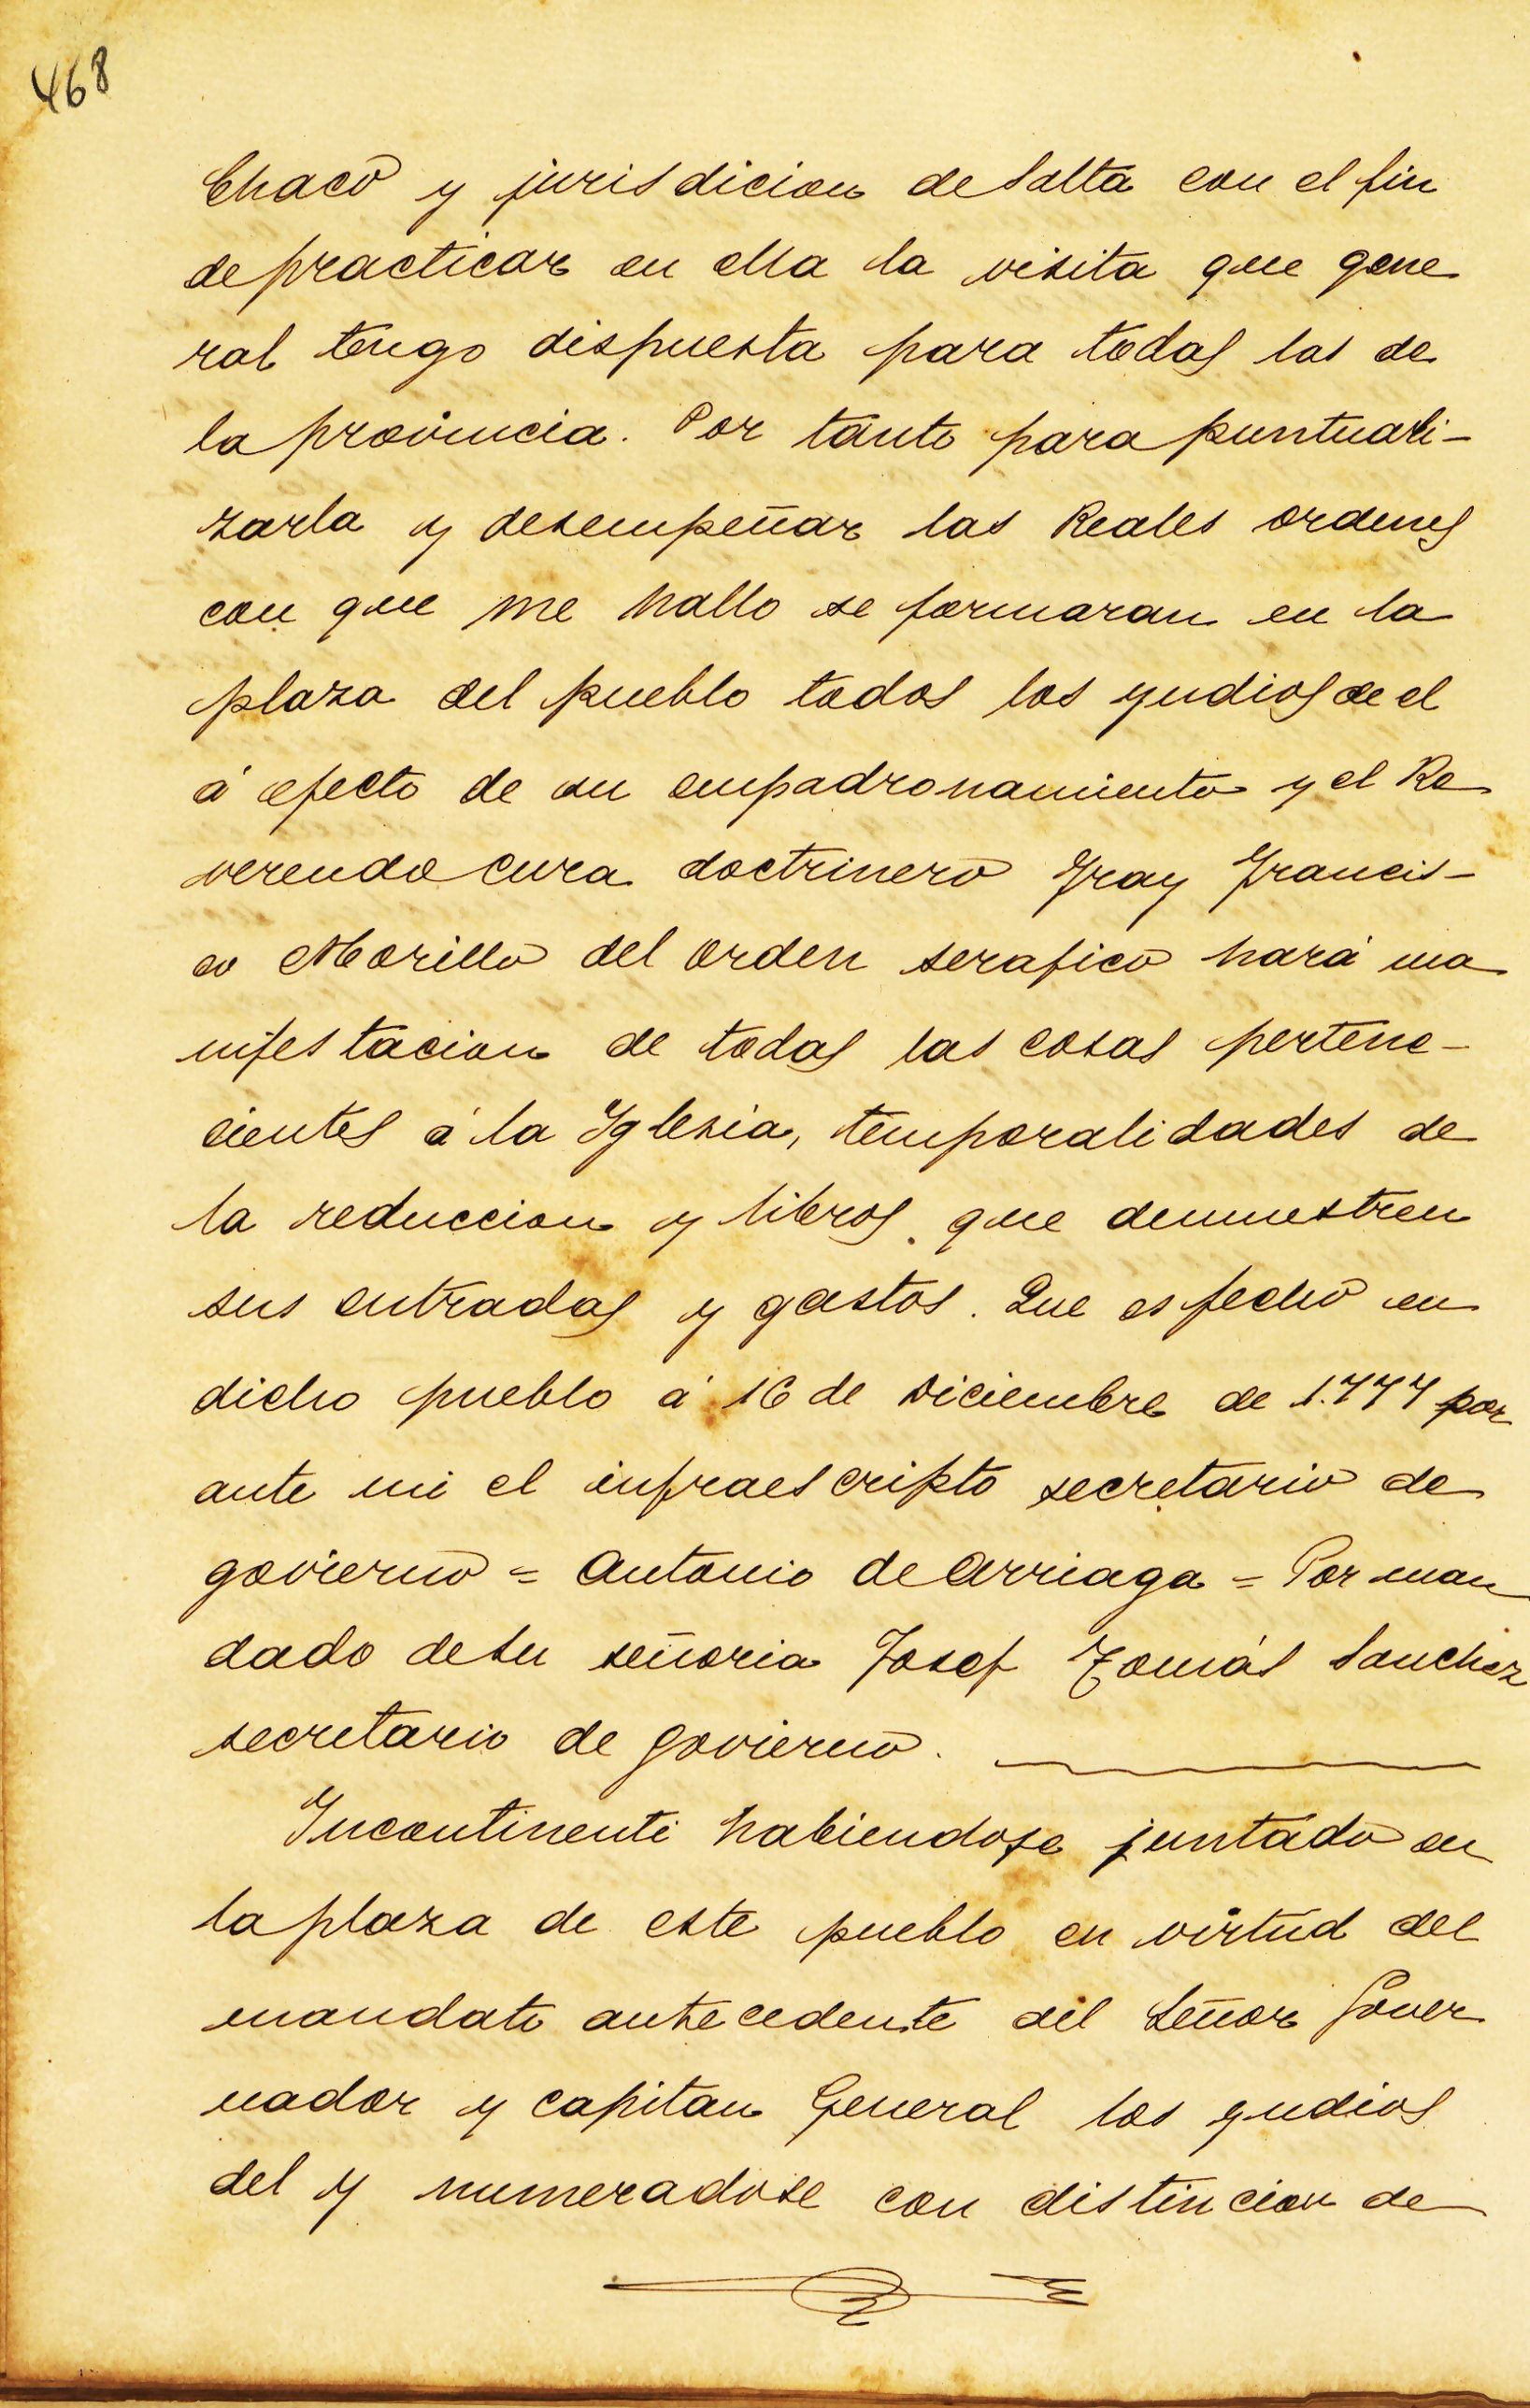 468
Chaco y jurisdicion de Salta con el fin
de practicar en ella la visita que gene
ral tengo dispuesta para todas las de
la provincia. Por tanto para puntuali-
zarla y desempeñar las Reales ordenes
con que me hallo se formaran en la
plaza del pueblo todos los yndios de el
á efecto de su empadronamiento y el Re
verendo cura doctrinero Fray Francis-
co Morillo del orden serafico hará ma
nifestacion de todas las cosas pertene-
cientes á la Yglesia, temporalidades de
la reduccion y libros que demuestren
sus entradas y gastos. Que es fecho en
dicho pueblo á 16 de Diciembre de 1.777 por
ante mi el infraescripto secretario de
govierno = Antonio de Arriaga = Por man
dado de su señoria Josef Tomás Sanchez
secretario de govierno.
Yncontinenti habiendose juntado en
la plaza de este pueblo en virtud del
mandato antecedente del Señor Gover
nador y capitan General los yndios
del y numeradose con distincion de